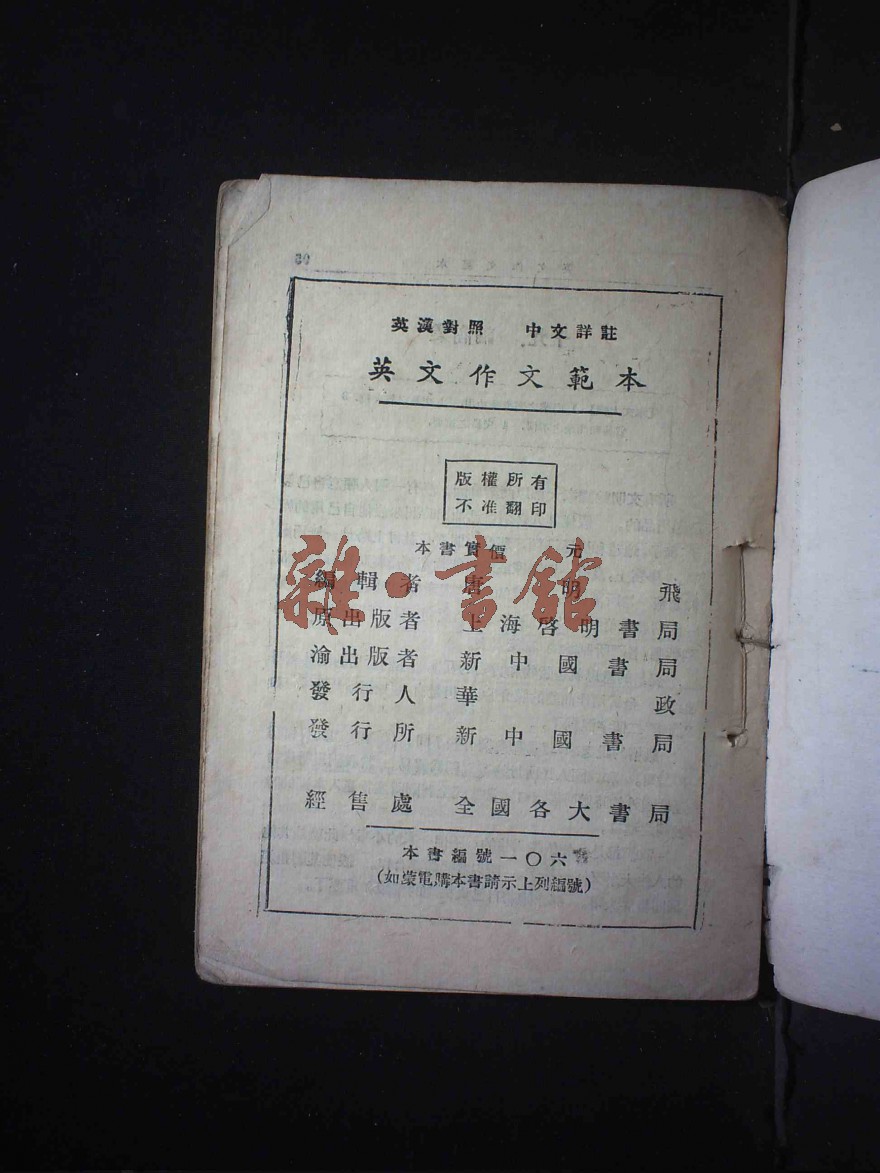 英漢對照　中文詳註
英文作文範本
版權所有
不准翻印
本書實價　元
編輯者　唐明飛
原出版者　上海啓明書局
渝出版者　新中國書局
發行人　華政
發行所　新中國書局
經售處　全國各大書局
本書編號一〇六
(如蒙電購本書請示上列編號)
雜·書館